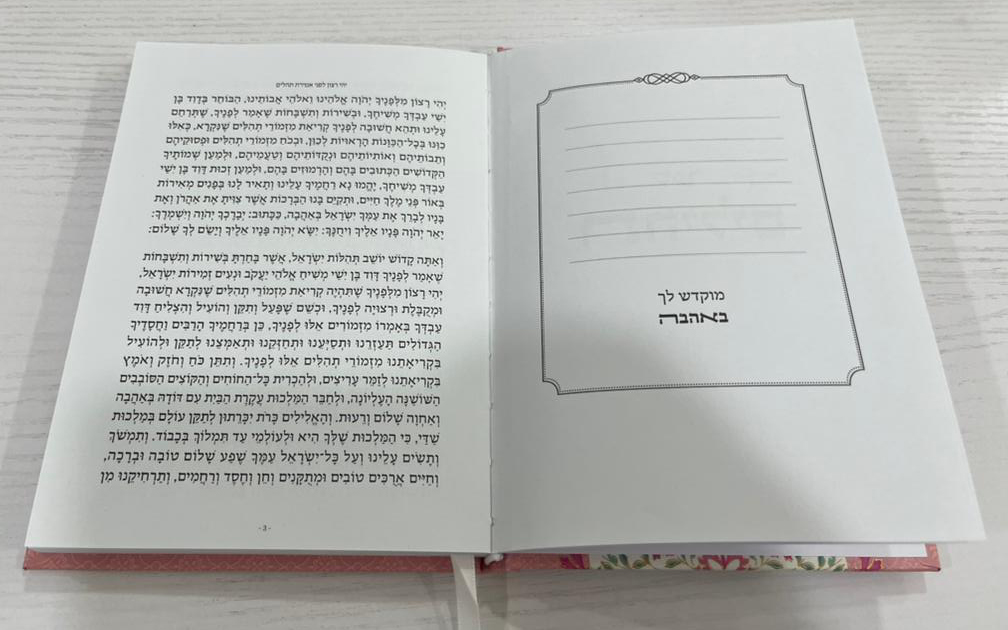 מוקדש לך
באהבה
יהי רצון לפני אמירת תהלים
יְהִי רָצוֹן מִלְּפָנֶיךָ יְהֹוָה אֱלֹהֵינוּ וֵאלֹהֵי אֲבוֹתֵינוּ, הַבּוֹחֵר בְּדָוִד בֶּן
יִשַׁי עַבְדְּךָ מְשִׁיחֶךָ, וּבְשִׁירוֹת וְתִשְׁבָּחוֹת שֶׁאָמַר לְפָנֶיךָ, שֶׁתְּרַחֵם
עָלֵינוּ וּתְהֵא חֲשׁוּבָה לְפָנֶיךָ קְרִיאַת מִזְמוֹרֵי תְהִלִּים שֶׁנִּקְרָא, כְּאִלּוּ
כִּוַּנּוּ בְּכָל־הַכַּוָּנוֹת הָרְאוּיוֹת לְכַוֵּן, וּבְכֹחַ מִזְמוֹרֵי תְהִלִּים וּפְסוּקֵיהֶם
וְתֵבוֹתֵיהֶם וְאוֹתִיּוֹתֵיהֶם וּנְקֻדּוֹתֵיהֶם וְטַעֲמֵיהֶם, וּלְמַעַן שְׁמוֹתֶיךָ
הַקְּדוֹשִׁים הַכְּתוּבִים בָּהֶם וְהָרְמוּזִים בָּהֶם, וּלְמַעַן זְכוּת דָּוִד בֶּן יִשַׁי
עַבְדְּךָ מְשִׁיחֶךָ, יֶהֱמוּ נָא רַחֲמֶיךָ עָלֵינוּ וְתָאִיר לָנוּ בְּפָנִים מְאִירוֹת
בְּאוֹר פְּנֵי מֶלֶךְ חַיִּים, וּתְקַיֵּם בָּנוּ הַבְּרָכוֹת אֲשֶׁר צִוִּיתָ אֶת אַהֲרֹן וְאֶת
בָּנָיו לְבָרֵךְ אֶת עַמְּךָ יִשְׂרָאֵל בְּאַהֲבָה, כַּכָּתוּב: יְבָרֶכְךָ יְהֹוָה וְיִשְׁמְרֶךָ:
יָאֵר יְהֹוָה פָּנָיו אֵלֶיךָ וִיחֻנֶּךָּ: יִשָּׂא יְהֹוָה פָּנָיו אֵלֶיךָ וְיָשֵׂם לְךָ שָׁלוֹם:
וְאַתָּה קָדוֹשׁ יוֹשֵׁב תְּהִלּוֹת יִשְׂרָאֵל, אֲשֶׁר בָּחַרְתָּ בְּשִׁירוֹת וְתִשְׁבָּחוֹת
שֶׁאָמַר לְפָנֶיךָ דָּוִד בֶּן יִשַׁי מְשִׁיחַ אֱלֹהֵי יַעֲקֹב וּנְעִים זְמִירוֹת יִשְׂרָאֵל,
יְהִי רָצוֹן מִלְּפָנֶיךָ שֶׁתִּהְיֶה קְרִיאַת מִזְמוֹרֵי תְהִלִּים שֶׁנִּקְרָא חֲשׁוּבָה
וּמְקֻבֶּלֶת וּרְצוּיָה לְפָנֶיךָ, וּכְשֵׁם שֶׁפָּעַל וְתִקֵּן וְהוֹעִיל וְהִצְלִיחַ דָּוִד
עַבְדְּךָ בְּאָמְרוֹ מִזְמוֹרִים אֵלּוּ לְפָנֶיךָ, כֵּן בְּרַחֲמֶיךָ הָרַבִּים וַחֲסָדֶיךָ
הַגְּדוֹלִים תַּעַזְרֵנוּ וּתְסַיְּעֵנוּ וּתְחַזְּקֵנוּ וּתְאַמְּצֵנוּ לְתַקֵּן וּלְהוֹעִיל
בִּקְרִיאָתֵנוּ מִזְמוֹרֵי תְהִלִּים אֵלּוּ לְפָנֶיךָ. וְתִתֵּן כֹּחַ וְחֹזֶק וְאֹמֶץ
בִּקְרִיאָתֵנוּ לְזַמֵּר עָרִיצִים, וּלְהַכְרִית כָּל־הַחוֹחִים וְהַקּוֹצִים הַסּוֹבְבִים
הַשּׁוֹשַׁנָּה הָעֶלְיוֹנָה, וּלְחַבֵּר הַמַּלְכוּת עֲקֶרֶת הַבַּיִת עִם דּוֹדָהּ בְּאַהֲבָה
וְאַחֲוָה שָׁלוֹם וְרֵעוּת. וְהָאֱלִילִים כָּרֹת יִכָּרֵתוּן לְתַקֵּן עוֹלָם בְּמַלְכוּת
שַׁדַּי, כִּי הַמַּלְכוּת שֶׁלְּךָ הִיא וּלְעוֹלְמֵי עַד תִּמְלוֹךְ בְּכָבוֹד. וְתִמְשֹׁךְ
וְתָשִׂים עָלֵינוּ וְעַל כָּל־יִשְׂרָאֵל עַמֶּךָ שֶׁפַע שָׁלוֹם טוֹבָה וּבְרָכָה,
וְחַיִּים אֲרֻכִּים טוֹבִים וּמְתֻקָּנִים וְחֵן וְחֶסֶד וְרַחֲמִים, וְתַרְחִיקֵנוּ מִן
- 3 -